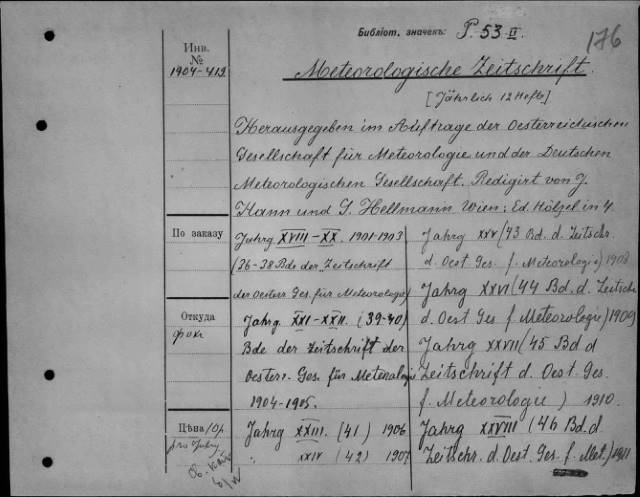 Библіот. значекъ: P. 53 II.
176
Инв.
№
1904-412
Meteorologische Zeitschrift.
[Jährlich 12 Hefte]
Herausgegeben im Auftrage der Oesterreichischen
Gesellschaft für Meteorologie und der Deutschen
Meteorologischen Gesellschaft. Redigirt von J.
Hann und G. Hellmann Wien: Ed. Hölzel in 4.
По заказу
Jahrg XVIII-XX. 1901-1903
(36-38 Bde der Zeitschrift
der Oesterr Ges. für Meteorologie)
Откуда
Jahrg XXI-XXII. (39-40)
Bde der Zeitschrift der
Oesterr. Ges. für Meteorologie
1904-1905.
Цѣна
Jahrg XXIII. (41) 1906
" XXIV (42) 1907
Jahrg XXV (43 Bd. d. Zeitschr.
d. Oest Ges. f. Meteorologie) 1908
Jahrg XXVI (44 Bd. d. Zeitschr
d. Oest Ges f. Meteorologie) 1909
Jahrg XXVII (45 Bd d
Zeitschrift d. Oest. Ges
f. Meteorologie) 1910.
Jahrg XXVIII (46 Bd. d
Zeitschr. d. Oest. Ges. f. Met.) 1911